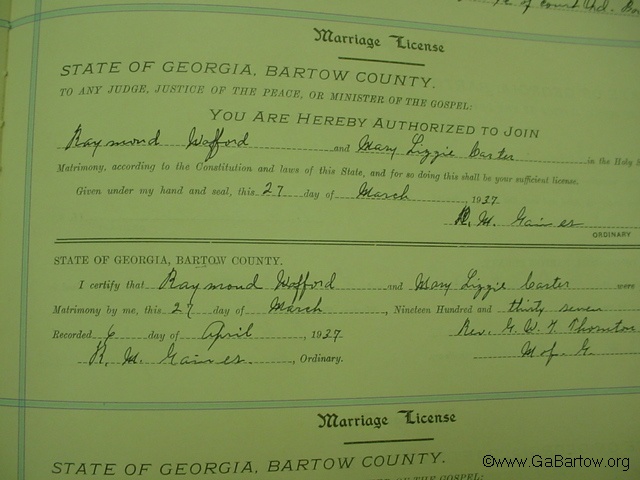 of Court Ind.
Marriage License
STATE OF GEORGIA, BARTOW COUNTY.
TO ANY JUDGE, JUSTICE OF THE PEACE, OR MINISTER OF THE GOSPEL:
YOU ARE HEREBY AUTHORIZED TO JOIN
Raymond Wofford and Mary Lizzie Carter in the Holy S
Matrimony, according to the Constitution and laws of this State, and for so doing this shall be your sufficient license.
Given under my hand and seal, this 27 day of March 1937.
R. M. Gaines
ORDINARY
STATE OF GEORGIA, BARTOW COUNTY.
I certify that Raymond Wofford and Mary Lizzie Carter were
Matrimony by me, this 27 day of March, Nineteen Hundred and thirty seven
Recorded 6 day of April, 1937 Rev. G. W. T. Thornton
R. M. Gaines, Ordinary. M of G.
Marriage License
STATE OF GEORGIA, BARTOW COUNTY.
OF THE GOSPEL:
©www.GaBartow.org